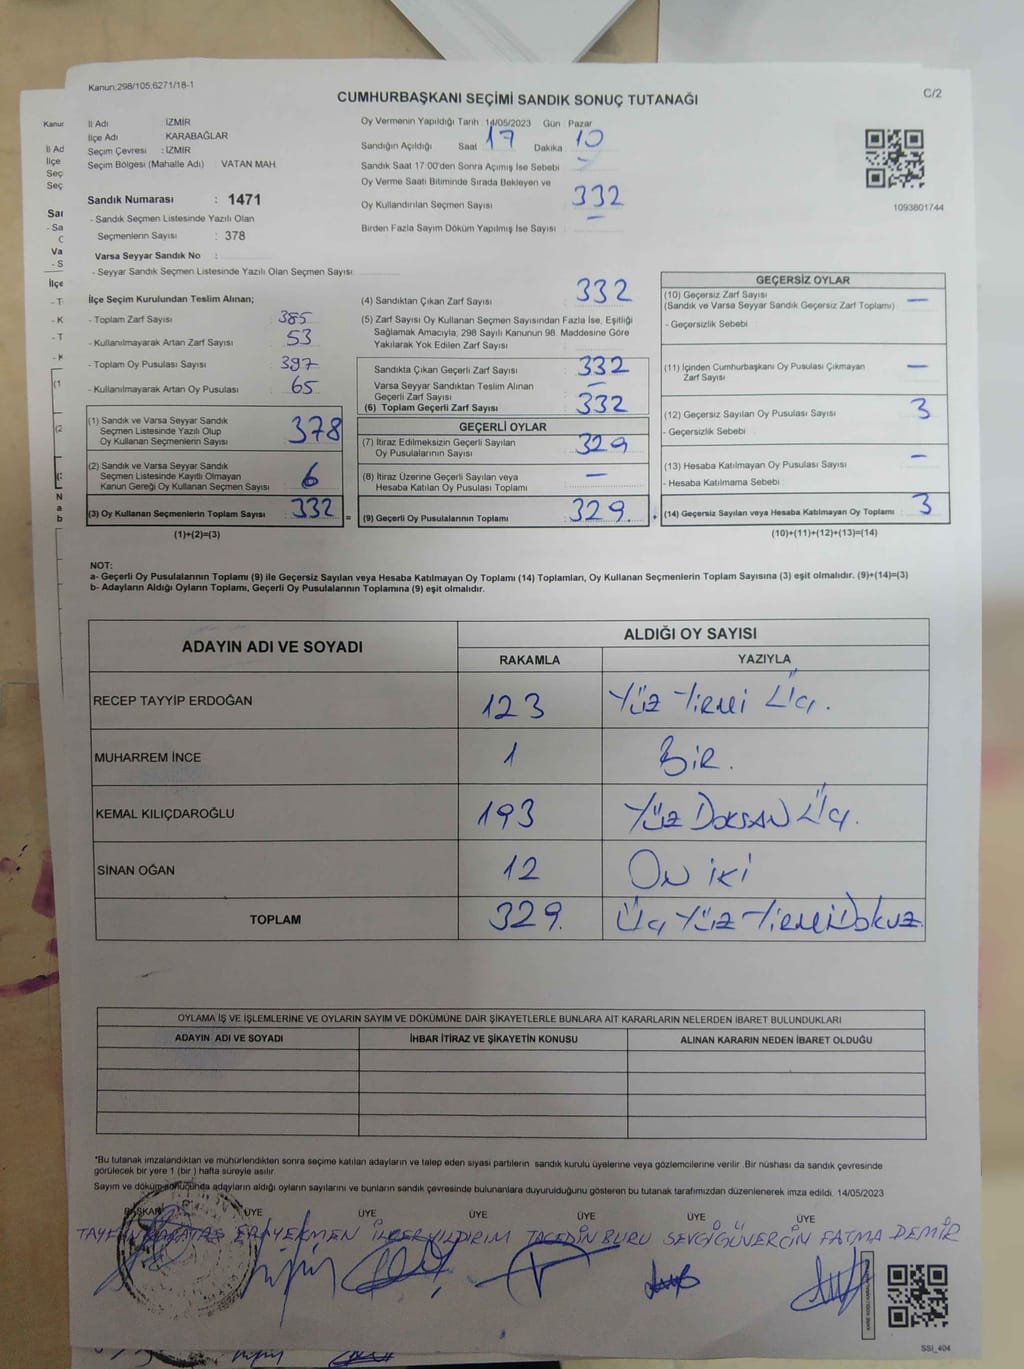 Kanun;298/105;6271/18-1
CUMHURBAŞKANI SEÇİMİ SANDIK SONUÇ TUTANAĞI
C/2
İl Adı : İZMİR
İlçe Adı : KARABAĞLAR
Seçim Çevresi : İZMİR
Seçim Bölgesi (Mahalle Adı) VATAN MAH.
Sandık Numarası : 1471
- Sandık Seçmen Listesinde Yazılı Olan
Seçmenlerin Sayısı : 378
Varsa Seyyar Sandık No :
- Seyyar Sandık Seçmen Listesinde Yazılı Olan Seçmen Sayısı:
Oy Vermenin Yapıldığı Tarih 14/05/2023 Gün : Pazar
Sandığın Açıldığı Saat 17 Dakika 10
Sandık Saat 17:00'den Sonra Açılmış İse Sebebi :
Oy Verme Saati Bitiminde Sırada Bekleyen ve
Oy Kullandırılan Seçmen Sayısı : 332
Birden Fazla Sayım Döküm Yapılmış İse Sayısı : –
1093801744
İlçe Seçim Kurulundan Teslim Alınan;
- Toplam Zarf Sayısı : 385
- Kullanılmayarak Artan Zarf Sayısı : 53
- Toplam Oy Pusulası Sayısı : 397
- Kullanılmayarak Artan Oy Pusulası : 65
(1) Sandık ve Varsa Seyyar Sandık
Seçmen Listesinde Yazılı Olup
Oy Kullanan Seçmenlerin Sayısı : 378
(2) Sandık ve Varsa Seyyar Sandık
Seçmen Listesinde Kayıtlı Olmayan
Kanun Gereği Oy Kullanan Seçmen Sayısı : 6
(3) Oy Kullanan Seçmenlerin Toplam Sayısı : 332 =
(1)+(2)=(3)
(4) Sandıktan Çıkan Zarf Sayısı : 332
(5) Zarf Sayısı Oy Kullanan Seçmen Sayısından Fazla İse, Eşitliği
Sağlamak Amacıyla; 298 Sayılı Kanunun 98. Maddesine Göre
Yakılarak Yok Edilen Zarf Sayısı :
Sandıkta Çıkan Geçerli Zarf Sayısı : 332
Varsa Seyyar Sandıktan Teslim Alınan
Geçerli Zarf Sayısı : –
(6) Toplam Geçerli Zarf Sayısı : 332
GEÇERLİ OYLAR
(7) İtiraz Edilmeksizin Geçerli Sayılan
Oy Pusulalarının Sayısı : 329
(8) İtiraz Üzerine Geçerli Sayılan veya
Hesaba Katılan Oy Pusulası Toplamı : –
(9) Geçerli Oy Pusulalarının Toplamı : 329. +
GEÇERSİZ OYLAR
(10) Geçersiz Zarf Sayısı
(Sandık ve Varsa Seyyar Sandık Geçersiz Zarf Toplamı) : –
- Geçersizlik Sebebi :
(11) İçinden Cumhurbaşkanı Oy Pusulası Çıkmayan
Zarf Sayısı : –
(12) Geçersiz Sayılan Oy Pusulası Sayısı : 3
- Geçersizlik Sebebi :
(13) Hesaba Katılmayan Oy Pusulası Sayısı : –
- Hesaba Katılmama Sebebi :
(14) Geçersiz Sayılan veya Hesaba Katılmayan Oy Toplamı : 3
(10)+(11)+(12)+(13)=(14)
NOT:
a- Geçerli Oy Pusulalarının Toplamı (9) ile Geçersiz Sayılan veya Hesaba Katılmayan Oy Toplamı (14) Toplamları, Oy Kullanan Seçmenlerin Toplam Sayısına (3) eşit olmalıdır. (9)+(14)=(3)
b- Adayların Aldığı Oyların Toplamı, Geçerli Oy Pusulalarının Toplamına (9) eşit olmalıdır.
ADAYIN ADI VE SOYADI
ALDIĞI OY SAYISI
RAKAMLA YAZIYLA
RECEP TAYYİP ERDOĞAN 123 Yüz Yirmi Üç.
MUHARREM İNCE 1 Bir.
KEMAL KILIÇDAROĞLU 193 Yüz Doksan Üç.
SİNAN OĞAN 12 On iki
TOPLAM 329. Üç Yüz Yirmi Dokuz.
OYLAMA İŞ VE İŞLEMLERİNE VE OYLARIN SAYIM VE DÖKÜMÜNE DAİR ŞİKAYETLERLE BUNLARA AİT KARARLARIN NELERDEN İBARET BULUNDUKLARI
ADAYIN ADI VE SOYADI İHBAR İTİRAZ VE ŞİKAYETİN KONUSU ALINAN KARARIN NEDEN İBARET OLDUĞU
*Bu tutanak imzalandıktan ve mühürlendikten sonra seçime katılan adayların ve talep eden siyasi partilerin sandık kurulu üyelerine veya gözlemcilerine verilir .Bir nüshası da sandık çevresinde
görülecek bir yere 1 (bir ) hafta süreyle asılır.
Sayım ve döküm sonucunda adayların aldığı oyların sayılarını ve bunların sandık çevresinde bulunanlara duyurulduğunu gösteren bu tutanak tarafımızdan düzenlenerek imza edildi. 14/05/2023
BAŞKAN ÜYE ÜYE ÜYE ÜYE ÜYE ÜYE
İLKER YILDIRIM TACEDİN BURU SEVGİ GÜVERCİN FATMA DEMİR
SSI_404